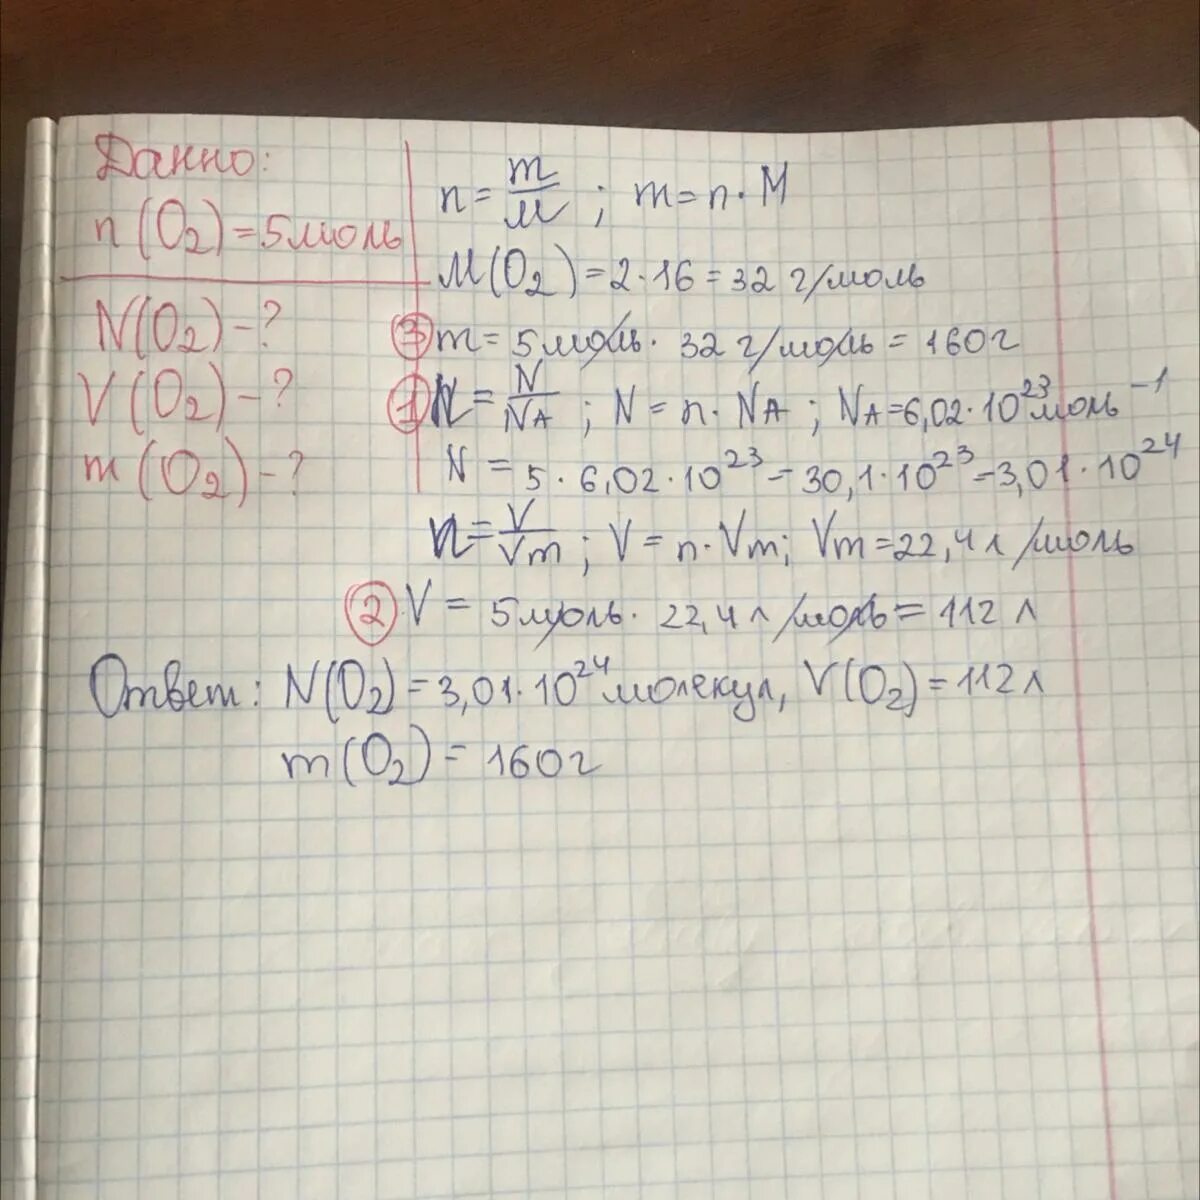 Данно:
n(O₂)=5моль
N(O₂)-?
V(O₂)-?
m(O₂)-?
n=m/M; m=n·M
M(O₂)=2·16=32 г/моль
③ m=5моль·32 г/моль=160г
① n=N/NA; N=n·NA; NA=6,02·10²³моль⁻¹
N=5·6,02·10²³=30,1·10²³=3,01·10²⁴
n=V/Vm; V=n·Vm; Vm=22,4л/моль
② V=5моль·22,4л/моль=112л
Ответ: N(O₂)=3,01·10²⁴молекул, V(O₂)=112л
m(O₂)=160г